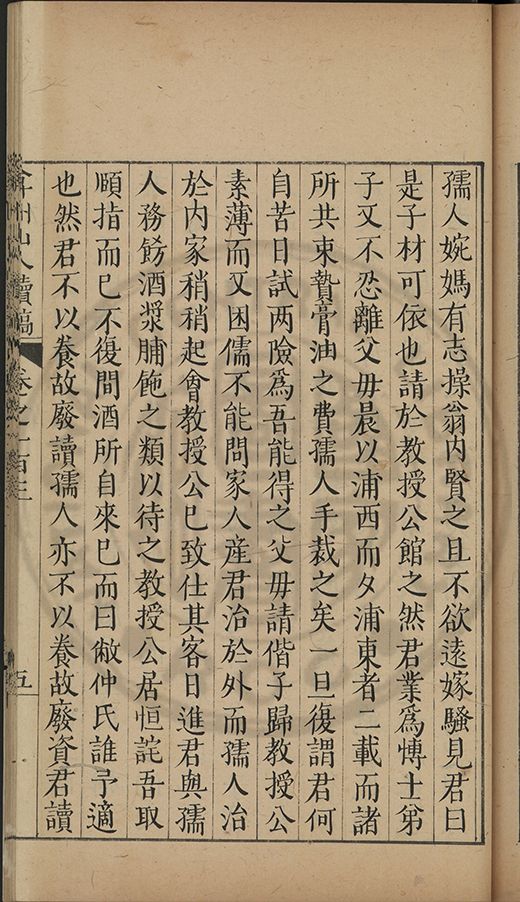 孺人婉嫕有志操翁內賢之且不欲遠嫁騷見君曰
是子材可依也請於教授公館之然君業為愽士弟
子又不忍離父毋晨以浦西而夕浦東者二載而諸
所共束贄膏油之費孺人手裁之矣一旦復謂君何
自苦日試两險為吾能得之父毋請偕子歸教授公
素薄而又困儒不能問家人産君治於外而孺人治
於内家稍稍起會教授公巳致仕其客日進君與孺
人務餝酒漿脯飽之類以待之教授公居恒詫吾取
頤指而巳不復間酒所自來巳而曰敝仲氏誰予適
也然君不以養故廢讀孺人亦不以養故廢資君讀
弇州山人讀稿
卷之一百三
五